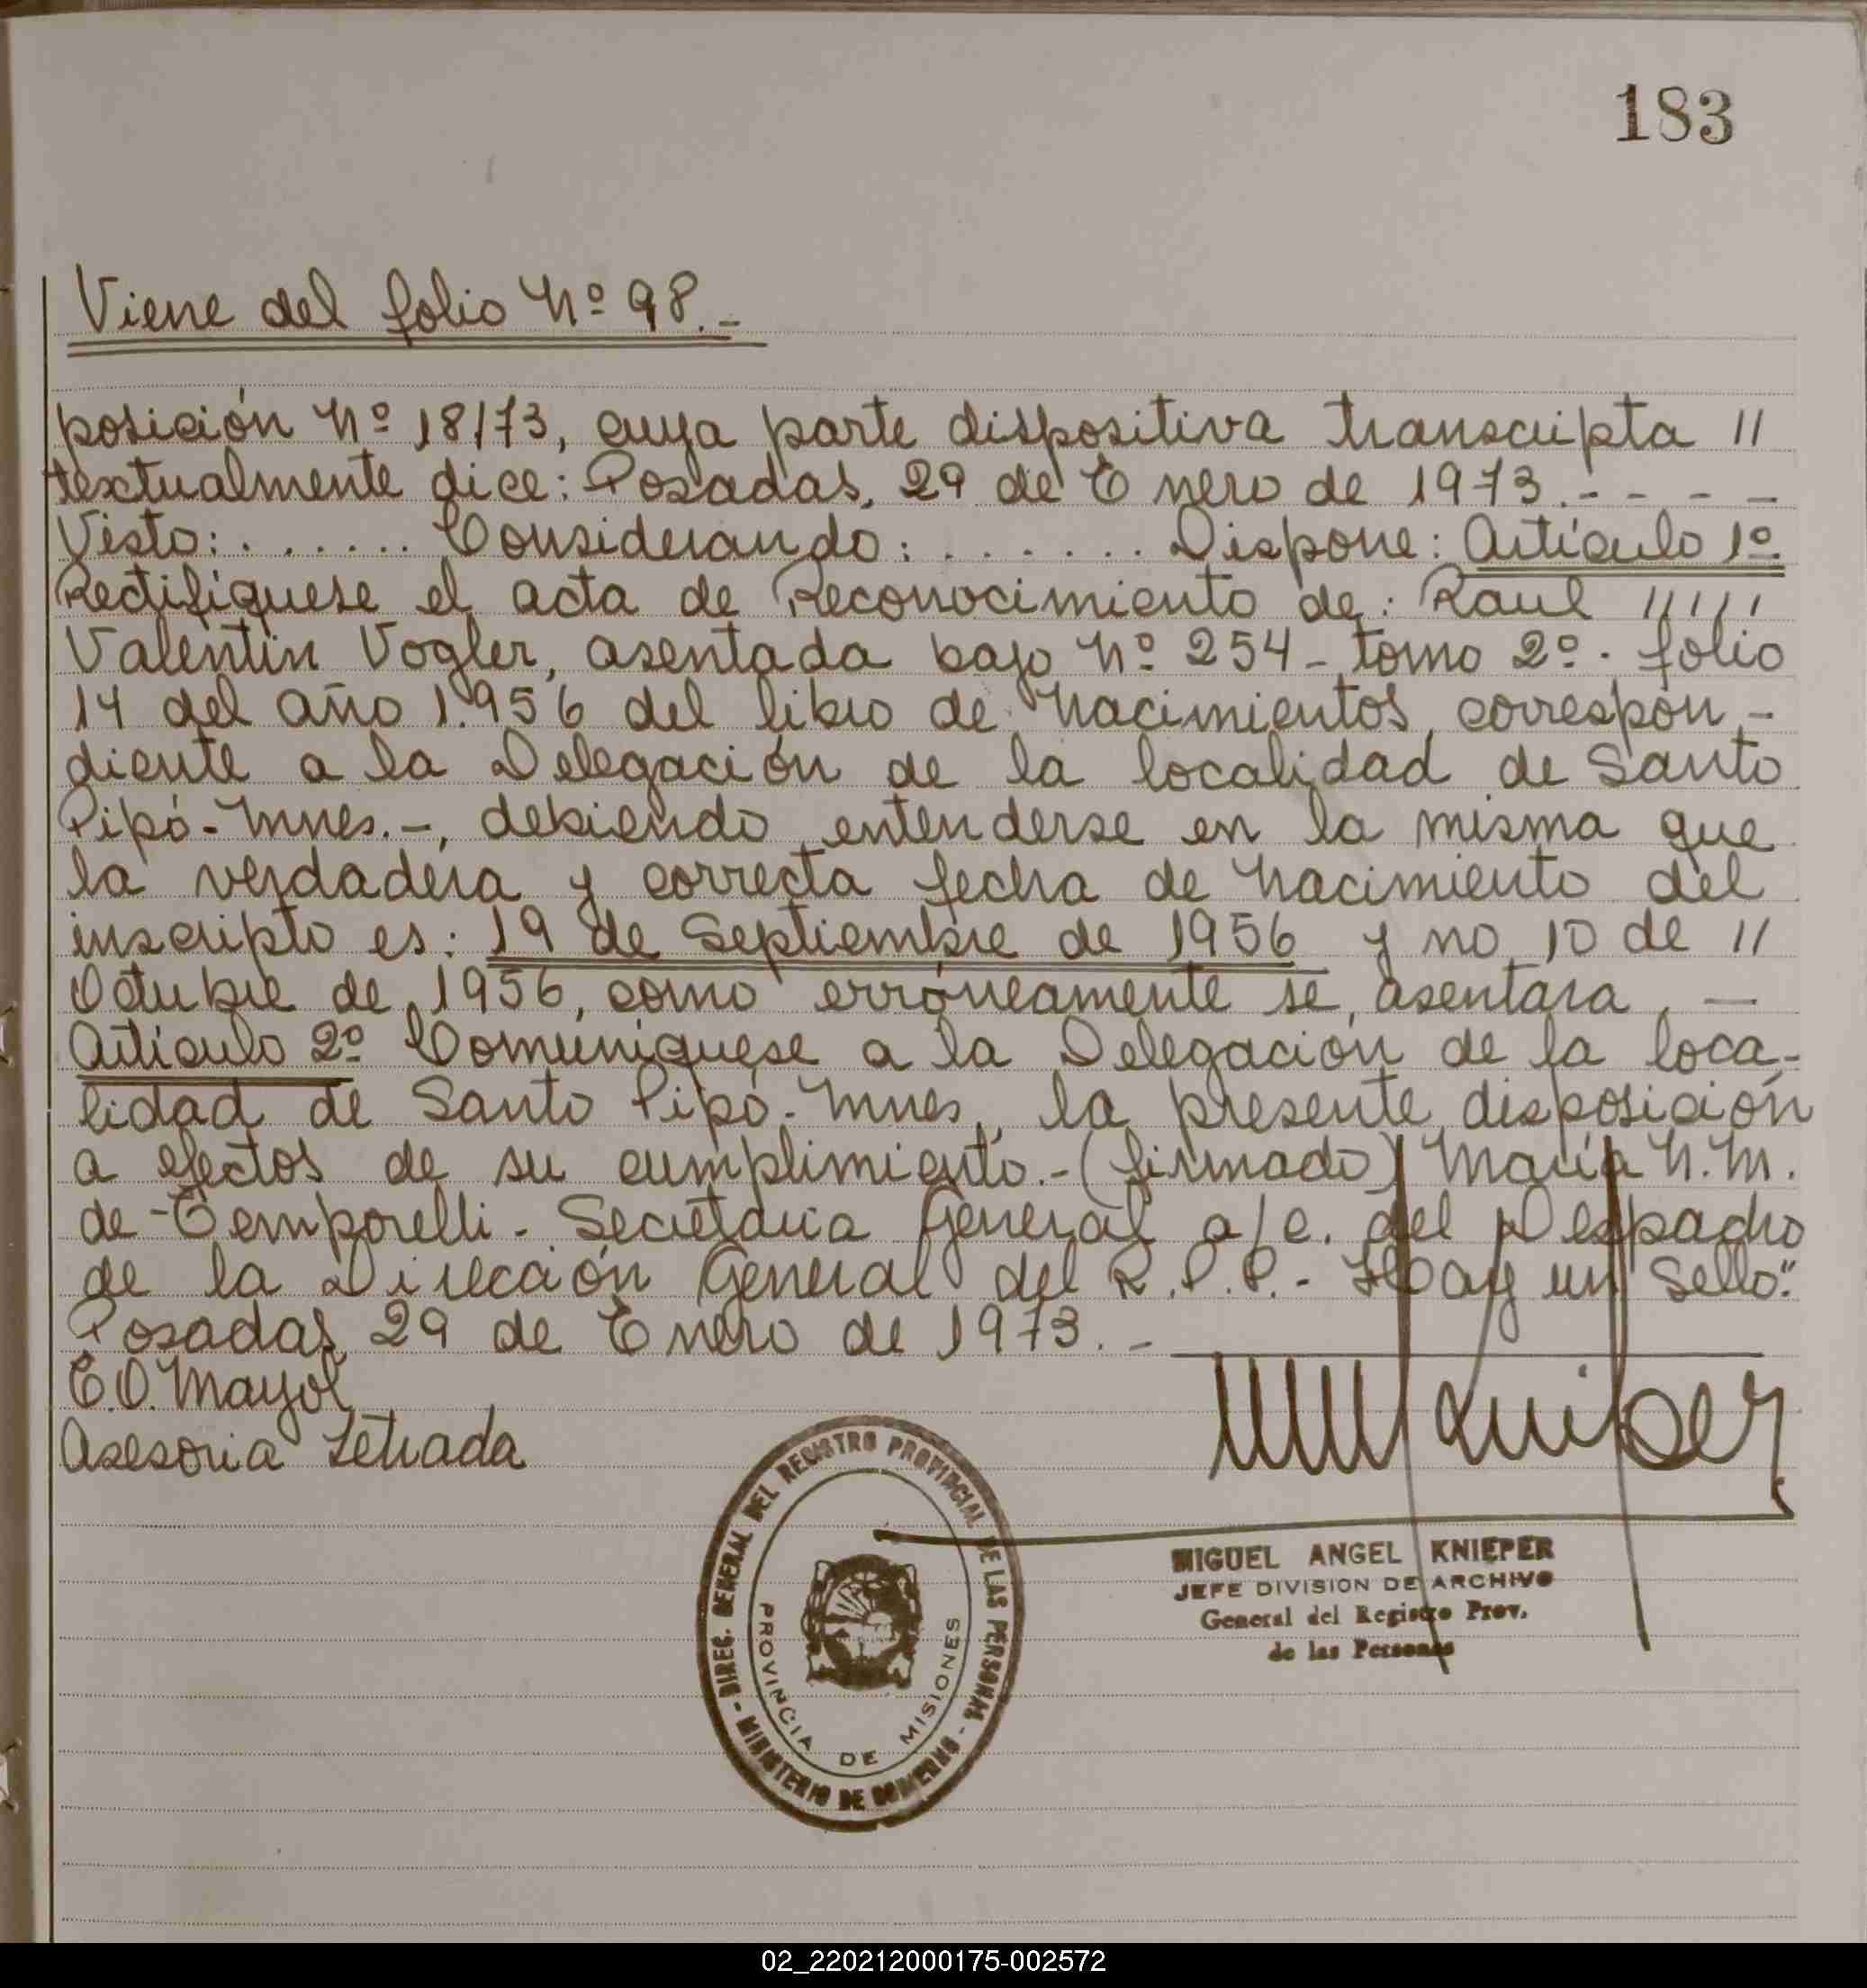 183
Viene del folio Nº 98.-
posición Nº 18/73, cuya parte dispositiva transcripta //
textualmente dice: Posadas, 29 de Enero de 1973.- - - -
Visto:....... Considerando:....... Dispone: Artículo 1º
Rectifíquese el acta de Reconocimiento de: Raul /////
Valentín Vogler, asentada bajo Nº 254 - tomo 2º. folio
14 del año 1.956 del libro de Nacimientos, correspon-
diente a la Delegación de la localidad de Santo
Pipó - Mnes.-, debiendo entenderse en la misma que
la verdadera y correcta fecha de nacimiento del
inscripto es: 19 de Septiembre de 1956 y no 10 de //
Octubre de 1956, como erróneamente se asentara. —
Artículo 2º Comuníquese a la Delegación de la loca-
lidad de Santo Pipó - Mnes, la presente disposición
a efectos de su cumplimiento.- (firmado) María N. M.
de Temporelli - Secretaria General a/c. del Despacho
de la Dirección General del R.P.P.- Hay un Sello."
Posadas, 29 de Enero de 1973.-
E.O. Mayol
Asesoria Letrada
Knieper
MIGUEL ANGEL KNIEPER
JEFE DIVISION DE ARCHIVO
General del Registro Prov.
de las Personas
- DIREC. GENERAL DEL REGISTRO PROVINCIAL DE LAS PERSONAS -
MINISTERIO DE GOBIERNO
PROVINCIA DE MISIONES
02_220212000175-002572